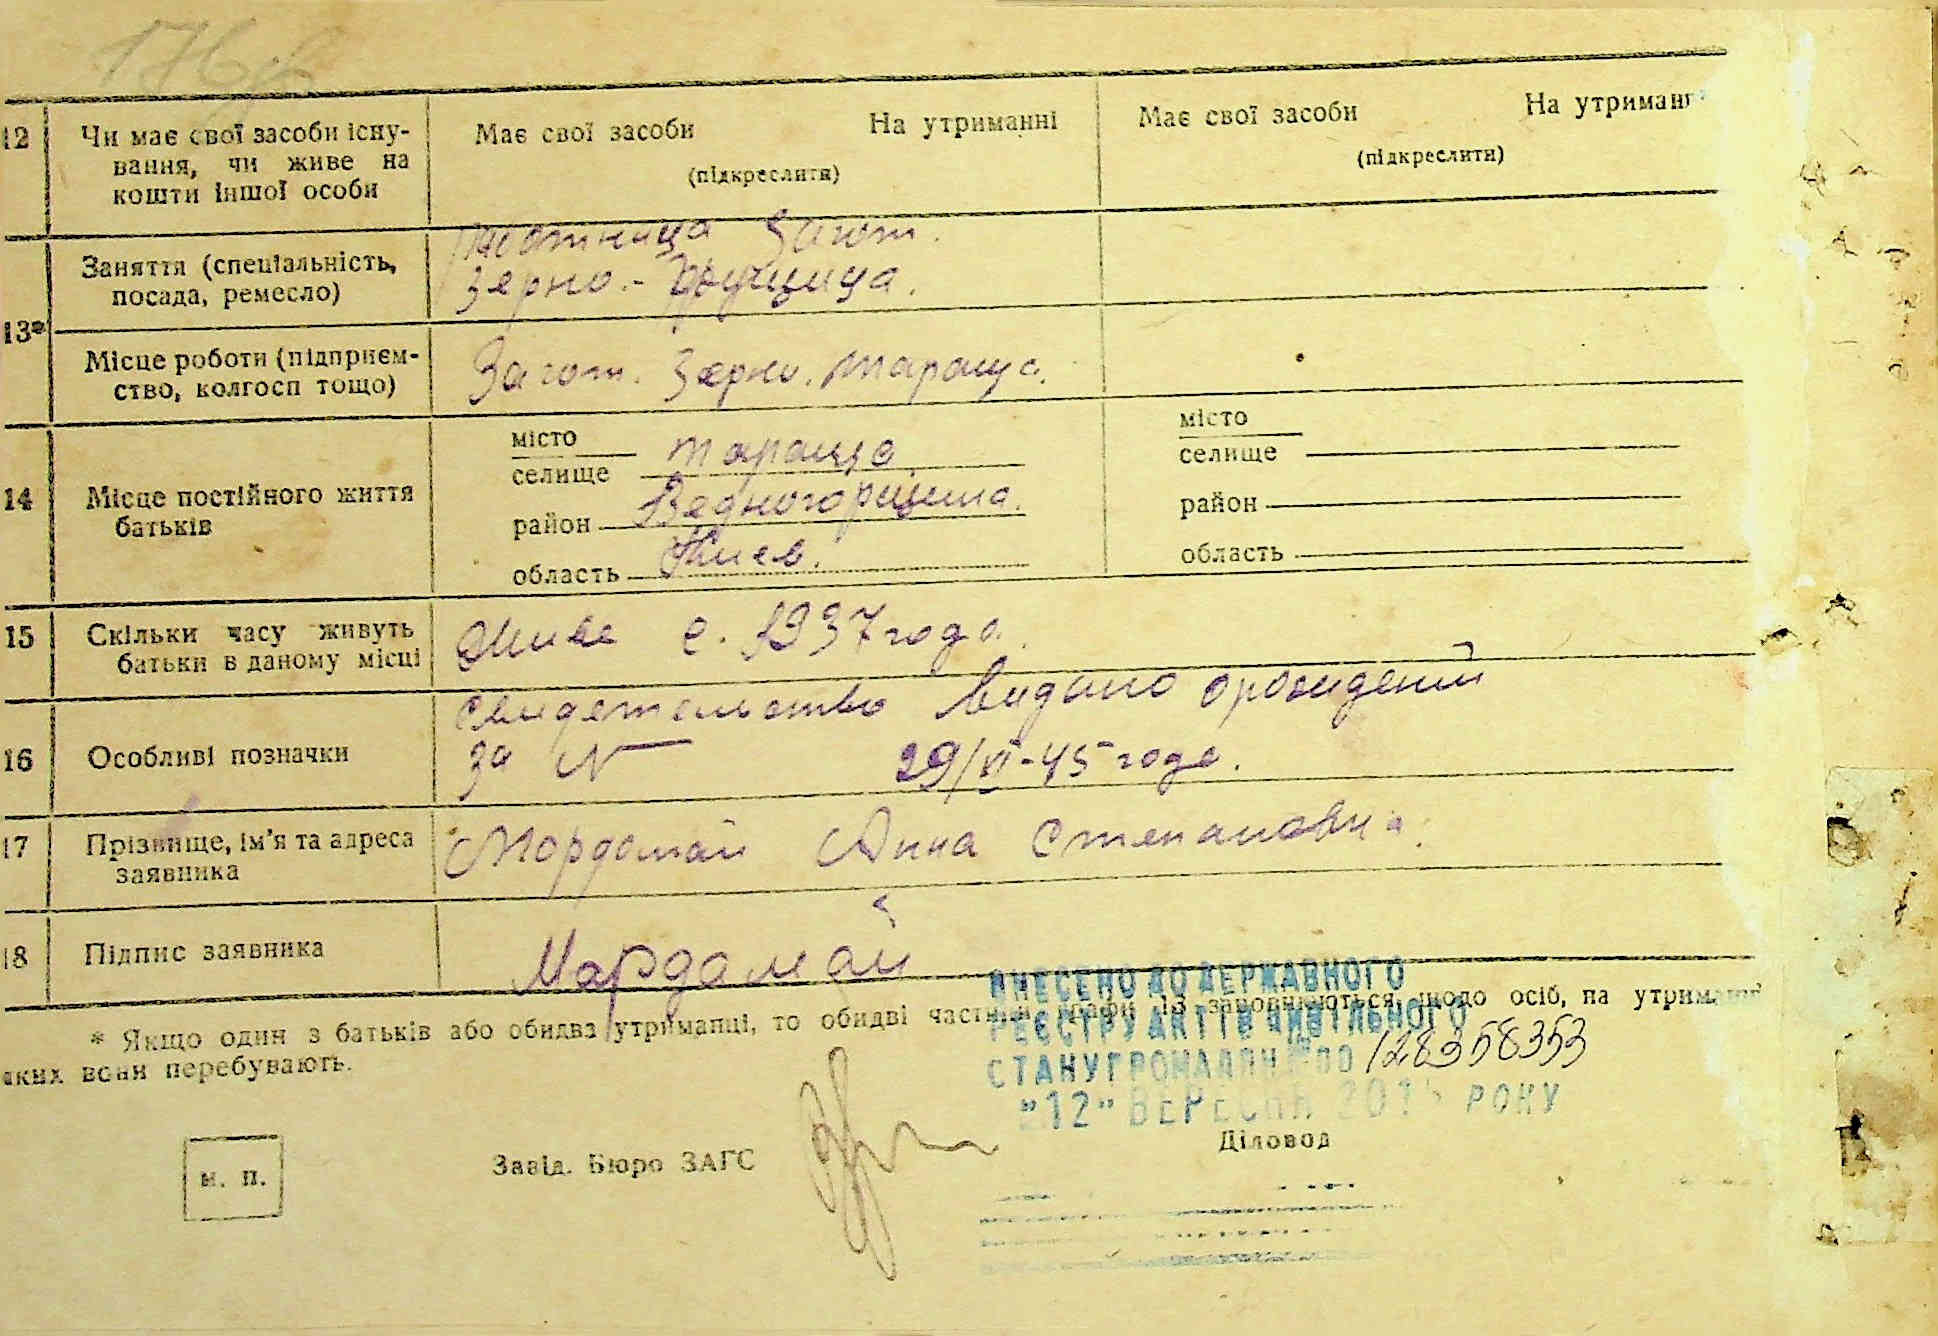 12 Чи має свої засоби існу-
вання, чи живе на
кошти іншої особи
Має свої засоби На утриманні
(підкреслити)
Має свої засоби На утриманн
(підкреслити)
13* Заняття (спеціальність,
посада, ремесло)
Загот.
Зерно.-
Місце роботи (підприєм-
ство, колгосп тощо)
Загот. Зерно. Тараща.
14 Місце постійного життя
батьків
місто
селище Тараща
район
область Киев.
місто
селище
район
область
15 Скільки часу живуть
батьки в даному місці
Живе с. 1937 года.
16 Особливі позначки
Свидетельство видано орождении
За N 29/VI-45 года.
17 Прізвище, ім'я та адреса
заявника
Мордамай Анна Степановна.
18 Підпис заявника
Мардамай
* Якщо один з батьків або обидва утриманці, то обидві частини графи 13 заповнюються щодо осіб, на утриманні
яких вони перебувають.
ВНЕСЕНО ДО ДЕРЖАВНОГО
РЕЄСТРУ АКТІВ ЦИВІЛЬНОГО
СТАНУ ГРОМАДЯН №00 128358353
"12" ВЕРЕСНЯ 201 РОКУ
м. п.
Завід. Бюро ЗАГС
Діловод